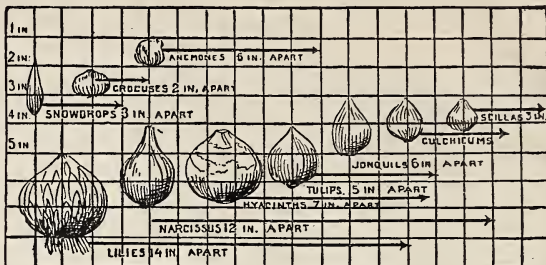 1 IN
2 IN.
ANEMONES 6 IN. APART
3 IN
CROCUSES 2 IN. APART
4 IN.
SNOWDROPS 3 IN. APART
SCILLAS 3 IN.
CULCHICUMS
5 IN
JONQUILS 6 IN APART
TULIPS. 5 IN APART
HYACINTHS 7 IN. APART
NARCISSUS 12 IN. APART
LILIES 14 IN. APART